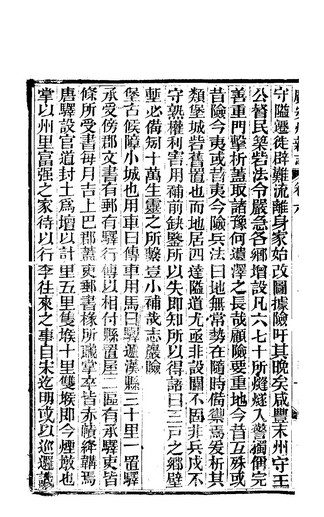 廣安州新志 卷六
守隘遷徙辟難流離身家始改圖據險吁其晚矣咸豐末州守王
公督民築砦法令嚴急各鄉增設凡六七十所縫縫入警獨倒完
善重門擊柝蓋取諸豫何遺澤之長哉顧險要重地今昔互殊或
昔險今夷或昔夷今險兵法曰地無常勢在隨時備禦焉爰析其
類堡城砦舊置也而地居四達隘道尤亟非設關不固非兵戍不
守熟權利害用補前缺鑒所以失即知所以得諸曰三戶之鄉壁
塹必備矧十萬生靈之所繫豈小補哉志嚴險
堡古候障小城也用車曰傳車用馬曰驛漢縣三十里一置驛
承受傍郡文書有郵有驛行傳以相付縣置屋二區有承驛吏皆
條所受書每月吉上巴郡蓋吏郵書掾所職掌卒皆赤幘絳韝焉
唐驛設官道封土為壇以計里五里隻堠十里雙堠即今煙墩也
掌以州里富强之家待以行李往來之事自宋迄明或以巡邏議